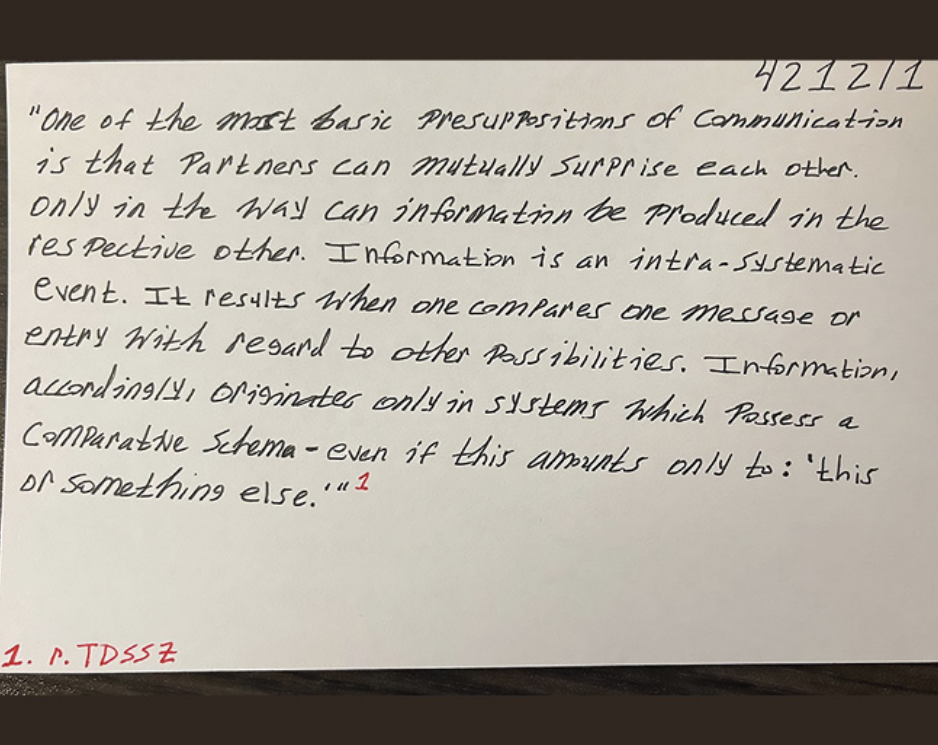 4212/1
"One of the most basic presuppositions of communication
is that Partners can mutually surprise each other.
only in the way can information be produced in the
respective other. Information is an intra-systematic
event. It results when one compares one message or
entry with regard to other possibilities. Information,
accordingly, originates only in systems which possess a
comparative schema - even if this amounts only to: 'this
or something else.'" 1
1. r. TDSSZ